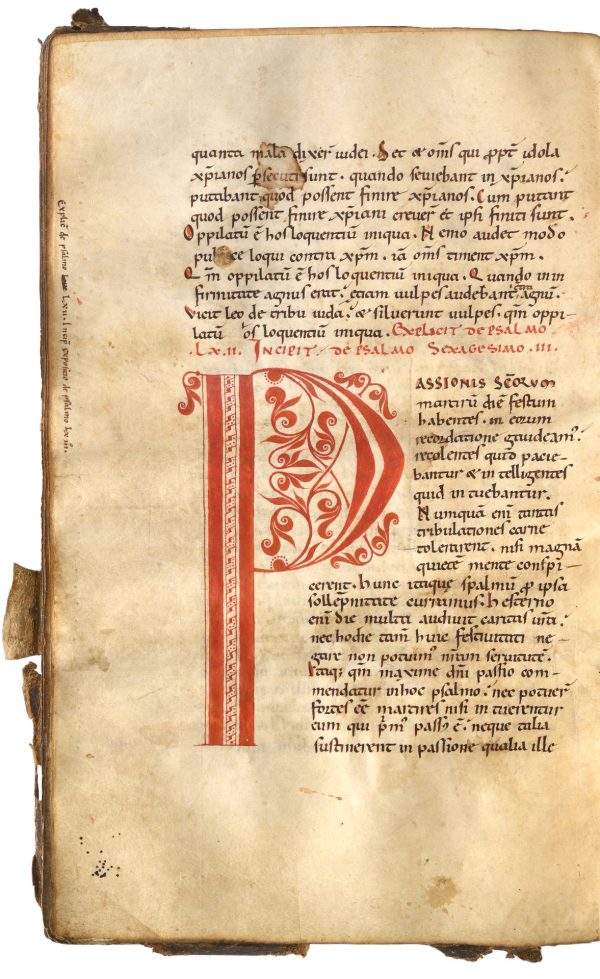 quanta mala dixer̄ iudei. Set & om̄s qui ꝓpt̄ idola
xp̄ianos ꝑsecuti sunt. quando seuiebant in xp̄ianos.
putabant quod possent finire xp̄ianos. Cum putant
quod possent finire xp̄iani creuer̄ & ipsi finiti sunt.
Oppilatū ē hos loquentiū iniqua. Nemo audet modo
publice loqui contra xp̄m. iā om̄s timent xp̄m.
Qm̄ oppilatū ē hos loquentiū iniqua. Quando in in
firmitate agnus erat. etiam uulpes audebant contra agnū.
Uicit leo de tribu iuda. & siluerunt uulpes. qm̄ oppi
latū os loquentiū iniqua. EXPLICIT DE PSALMO
.LX.II. INCIPIT DE PSALMO SEXAGESIMO .III.
PASSIONIS SC̄ORUM
martirū diē festum
habentes. in eorum
recordatione gaudeam᷒
recolentes quid pacie-
bantur & intelligentes
quid intuebantur.
Nunquam eni᷒ tantas
tribulationes carne
tolerarent. nisi magnā
quietē mente conspi-
cerent. Hunc itaque spalmū ꝓ ipsa
sollēpnitate curramus. Hesterno
eni᷒ die multa audiuit caritas ur̄a.
nec hodie tam̄ huic festiuitati ne-
gare non potuim᷒ nr̄am seruitutē.
Itaq; qm̄ maxime dn̄i passio com-
mendatur in hoc psalmo. nec potuer̄
fortes eē martires nisi intuerentur
eum qui pm᷒ passus ē. neque talia
sustinerent in passione qualia ille
Explic̄ de psalmo LXII. Incip̄ de psalmo lx iii.